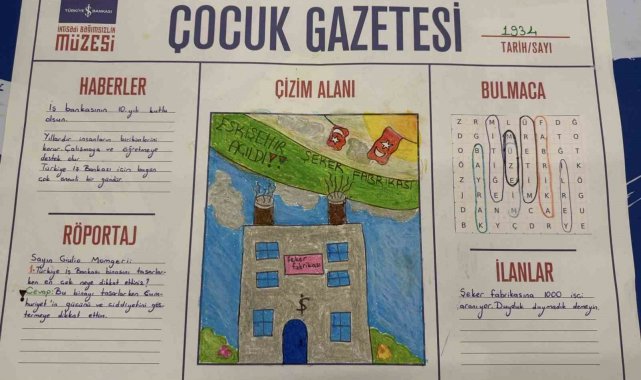 TÜRKİYE İŞ BANKASI
İKTİSADİ BAĞIMSIZLIK
MÜZESİ
ÇOCUK GAZETESİ
1934
TARİH/SAYI
HABERLER
İş bankasının 10. yılı kutlu
olsun.
Yıllardır insanların birikimlerini
korur. Çalışmaya ve öğretmeye
destek olur.
Türkiye İş Bankası için bugün
çok önemli bir gündür.
RÖPORTAJ
Sayın Gulio Momgeri:
1. Türkiye İş Bankası binasını tasarlar-
ken en çok neye dikkat ettiniz?
Cevap: Bu binayı tasarlarken Cum-
huriyet'in gücünü ve ciddiyetini gös-
termeye dikkat ettim.
ÇİZİM ALANI
ESKİŞEHİR ŞEKER FABRİKASI
AÇILDI!
Şeker
fabrikası
BULMACA
İLANLAR
Şeker fabrikasına 1000 işçi
aranıyor. Duyduk duymadık demeyin.